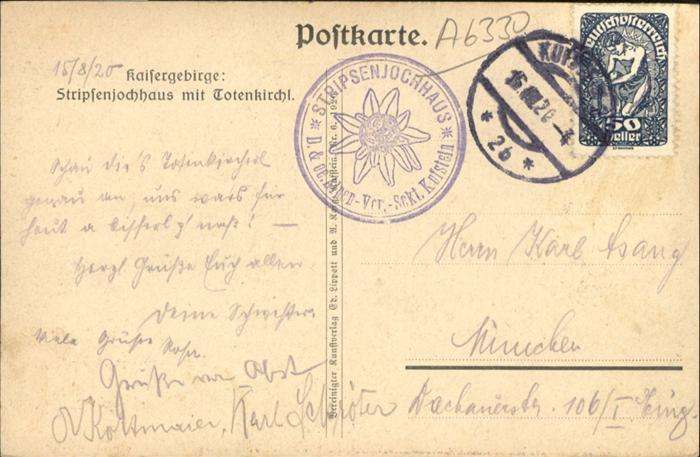 Postkarte.
A6330
15/8/20
Kaisergebirge:
Stripsenjochhaus mit Totenkirchl.
STRIPSENJOCHHAUS
Ver.-Sekt. Kufstein
Deutschösterreich
50
Heller
KUF
* 2b *
Schau dir's Totenkircherl
genau an, uns wars für
heut a bisserl z' naß! —
Herzl. Grüße Euch allen
Deine Schwester.
Viele Grüße Rosa.
Grüße von Obst
Kottmaier, Karl Schröter
Vereinigter Kunstverlag Ed. Lippott und A. Karg Kufstein, Nr. 6, 192
Herrn Karl
München
Dachauerstr. 106/I